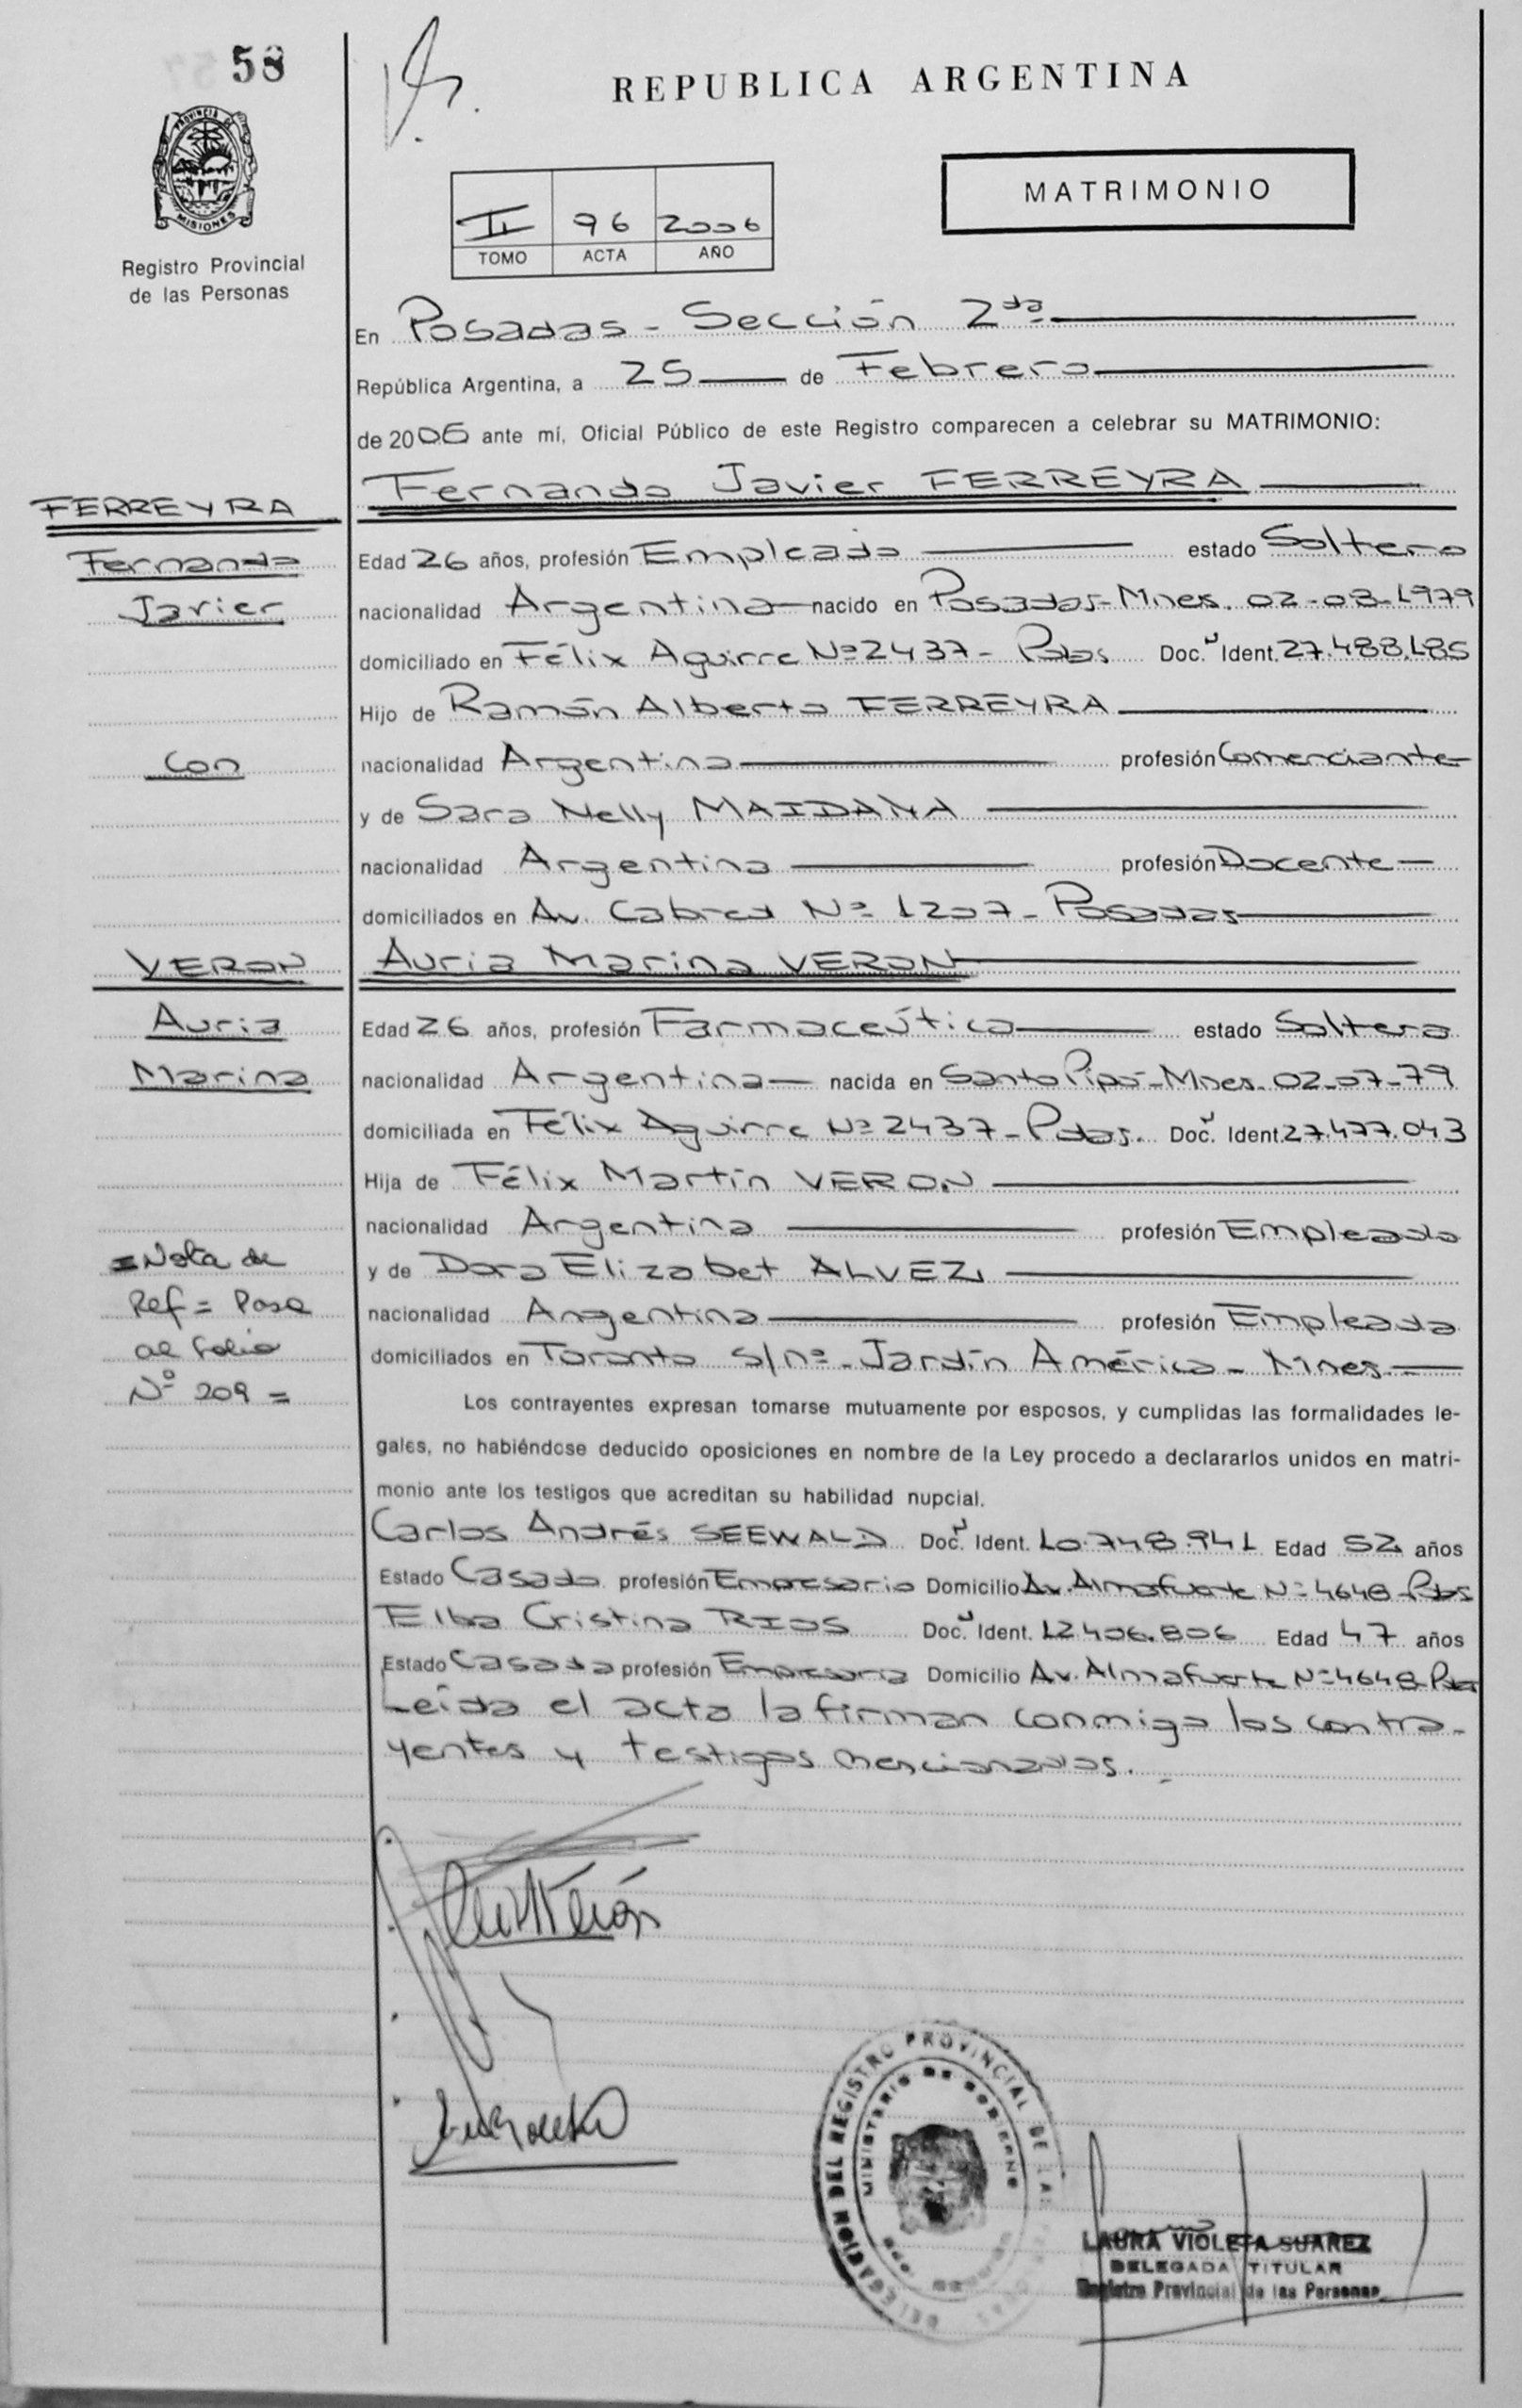 58
REPUBLICA ARGENTINA
PROVINCIA DE
MISIONES
Registro Provincial
de las Personas
MATRIMONIO
II 96 2006
TOMO ACTA AÑO
En Posadas - Sección 2da
República Argentina, a 25 de Febrero
de 2006 ante mí, Oficial Público de este Registro comparecen a celebrar su MATRIMONIO:
FERREYRA
Fernando Javier FERREYRA
Fernando
Edad 26 años, profesión Empleado estado Soltero
Javier
nacionalidad Argentina nacido en Posadas-Mnes. 02-08-1979
domiciliado en Félix Aguirre Nº 2437 - Pdas Doc. Ident. 27.488.185
Hijo de Ramón Alberto FERREYRA
con
nacionalidad Argentina profesión Comerciante
y de Sara Nelly MAIDANA
nacionalidad Argentina profesión Docente
domiciliados en Av. Cabred Nº 1207 - Posadas
VERON
Auria Marina VERON
Auria
Edad 26 años, profesión Farmaceútica estado Soltera
Marina
nacionalidad Argentina nacida en Santo Pipó-Mnes. 02-07-79
domiciliada en Félix Aguirre Nº 2437 - Pdas. Doc. Ident. 27.477.043
Hija de Félix Martín VERON
nacionalidad Argentina profesión Empleado
=Nota de
y de Dora Elizabet ALVEZ
Ref = Pase
nacionalidad Argentina profesión Empleada
al folio
domiciliados en Toronto s/nº - Jardín América - Mnes.
Nº 209 =
Los contrayentes expresan tomarse mutuamente por esposos, y cumplidas las formalidades le-
gales, no habiéndose deducido oposiciones en nombre de la Ley procedo a declararlos unidos en matri-
monio ante los testigos que acreditan su habilidad nupcial.
Carlos Andrés SEEWALD Doc. Ident. 10.748.941 Edad 52 años
Estado Casado profesión Empresario Domicilio Av. Almafuerte Nº 4648-Pdas
Elba Cristina RIOS Doc. Ident. 12406.806 Edad 47 años
Estado Casada profesión Empresaria Domicilio Av. Almafuerte Nº 4648-Pdas
Leida el acta la firman conmigo los contra-
yentes y testigos mencionados.
DELEGACION DEL REGISTRO PROVINCIAL DE LAS
MINISTERIO DE GOBIERNO
LAURA VIOLETA SUAREZ
DELEGADA TITULAR
Registro Provincial de las Personas